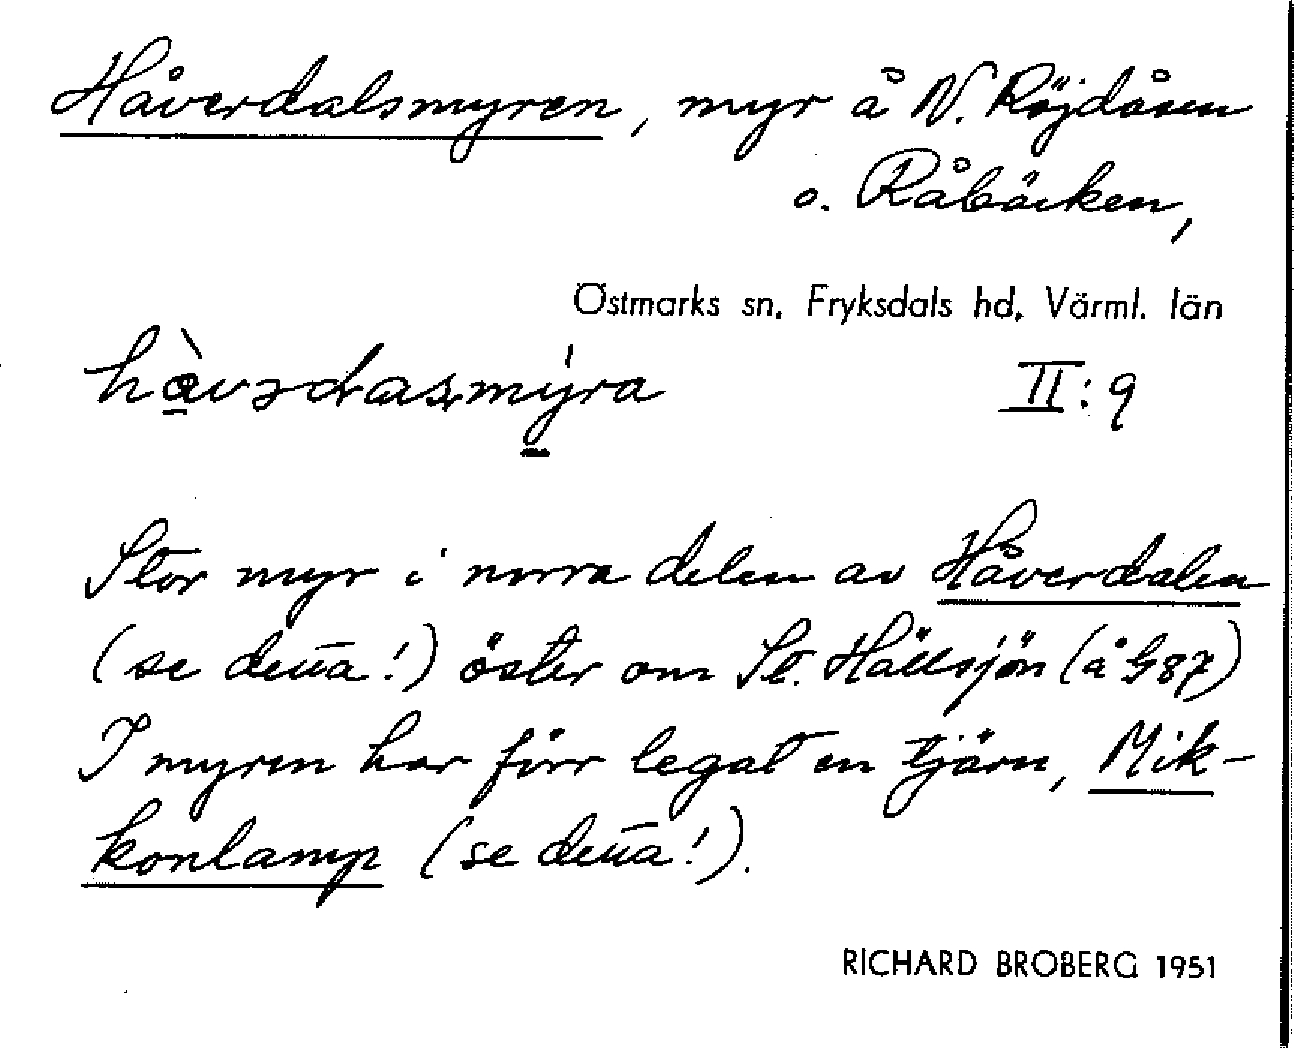 Håverdalsmyren, myr å N. Röjdåsen
o. Råbäcken,
Östmarks sn. Fryksdals hd. Värml. län
II:9
Stor myr i norra delen av Håverdalen
(se detta!) öster om St. Hällsjön (å G87)
I myren har förr legat en tjärn, Mik-
konlamp (se detta!).
RICHARD BROBERG 1951